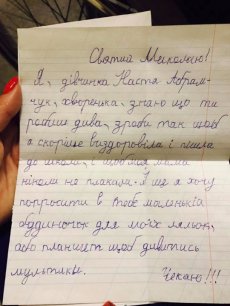 Святий Миколаю!
Я, дівчинка Настя Абрам-
чук, хворенька, знаю що ти
робиш дива, зроби так щоб
я скоріше виздоровіла і пішла
до школи, і щоб моя мама
ніколи не плакала. І ще я хочу
попросити в тебе маленькій
будиночок для моїх ляльок,
або планшет щоб дивитись
мультики.
Чекаю!!!